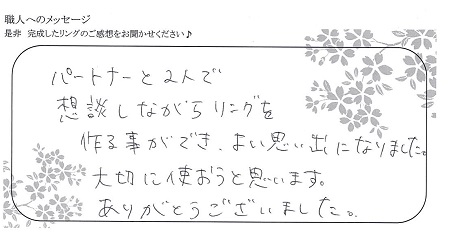 職人へのメッセージ
是非 完成したリングのご感想をお聞かせください♪
パートナーと2人で
想談しながらリングを
作る事ができ、よい思い出になりました。
大切に使おうと思います。
ありがとうございました。